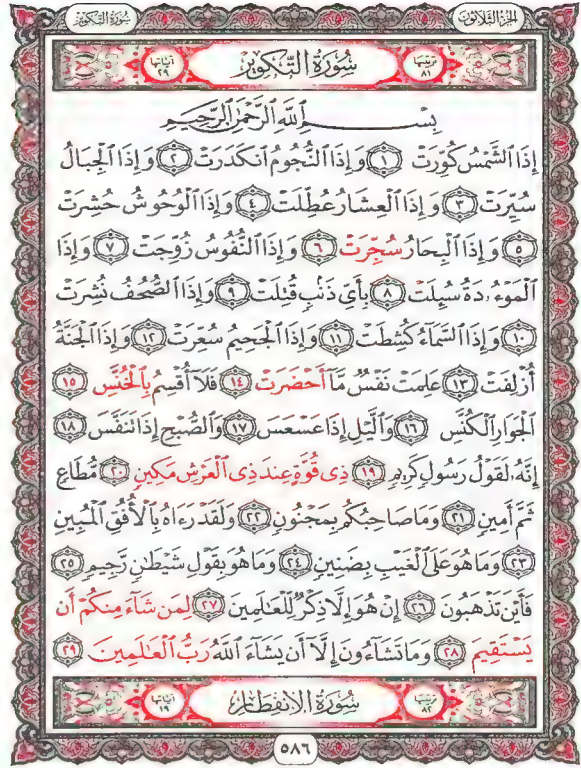 سُورَةُ التَّكْوِيرِ
الجُزْءُ الثَّلَاثُونَ
آيَاتُهَا ٢٩
سُورَةُ التَّكْوِيرِ
تَرْتِيبُهَا ٨١
بِسْمِ ٱللَّهِ ٱلرَّحْمَٰنِ ٱلرَّحِيمِ
إِذَا ٱلشَّمْسُ كُوِّرَتْ ١ وَإِذَا ٱلنُّجُومُ ٱنكَدَرَتْ ٢ وَإِذَا ٱلْجِبَالُ
سُيِّرَتْ ٣ وَإِذَا ٱلْعِشَارُ عُطِّلَتْ ٤ وَإِذَا ٱلْوُحُوشُ حُشِرَتْ
٥ وَإِذَا ٱلْبِحَارُ سُجِّرَتْ ٦ وَإِذَا ٱلنُّفُوسُ زُوِّجَتْ ٧ وَإِذَا
ٱلْمَوْءُۥدَةُ سُئِلَتْ ٨ بِأَىِّ ذَنۢبٍ قُتِلَتْ ٩ وَإِذَا ٱلصُّحُفُ نُشِرَتْ
١٠ وَإِذَا ٱلسَّمَآءُ كُشِطَتْ ١١ وَإِذَا ٱلْجَحِيمُ سُعِّرَتْ ١٢ وَإِذَا ٱلْجَنَّةُ
أُزْلِفَتْ ١٣ عَلِمَتْ نَفْسٌ مَّآ أَحْضَرَتْ ١٤ فَلَآ أُقْسِمُ بِٱلْخُنَّسِ ١٥
ٱلْجَوَارِ ٱلْكُنَّسِ ١٦ وَٱلَّيْلِ إِذَا عَسْعَسَ ١٧ وَٱلصُّبْحِ إِذَا تَنَفَّسَ ١٨
إِنَّهُۥ لَقَوْلُ رَسُولٍ كَرِيمٍ ١٩ ذِى قُوَّةٍ عِندَ ذِى ٱلْعَرْشِ مَكِينٍ ٢٠ مُّطَاعٍ
ثَمَّ أَمِينٍ ٢١ وَمَا صَاحِبُكُم بِمَجْنُونٍ ٢٢ وَلَقَدْ رَءَاهُ بِٱلْأُفُقِ ٱلْمُبِينِ
٢٣ وَمَا هُوَ عَلَى ٱلْغَيْبِ بِضَنِينٍ ٢٤ وَمَا هُوَ بِقَوْلِ شَيْطَٰنٍ رَّجِيمٍ ٢٥
فَأَيْنَ تَذْهَبُونَ ٢٦ إِنْ هُوَ إِلَّا ذِكْرٌ لِّلْعَٰلَمِينَ ٢٧ لِمَن شَآءَ مِنكُمْ أَن
يَسْتَقِيمَ ٢٨ وَمَا تَشَآءُونَ إِلَّآ أَن يَشَآءَ ٱللَّهُ رَبُّ ٱلْعَٰلَمِينَ ٢٩
تَرْتِيبُهَا ٨٢
سُورَةُ الِانْفِطَارِ
آيَاتُهَا ١٩
٥٨٦